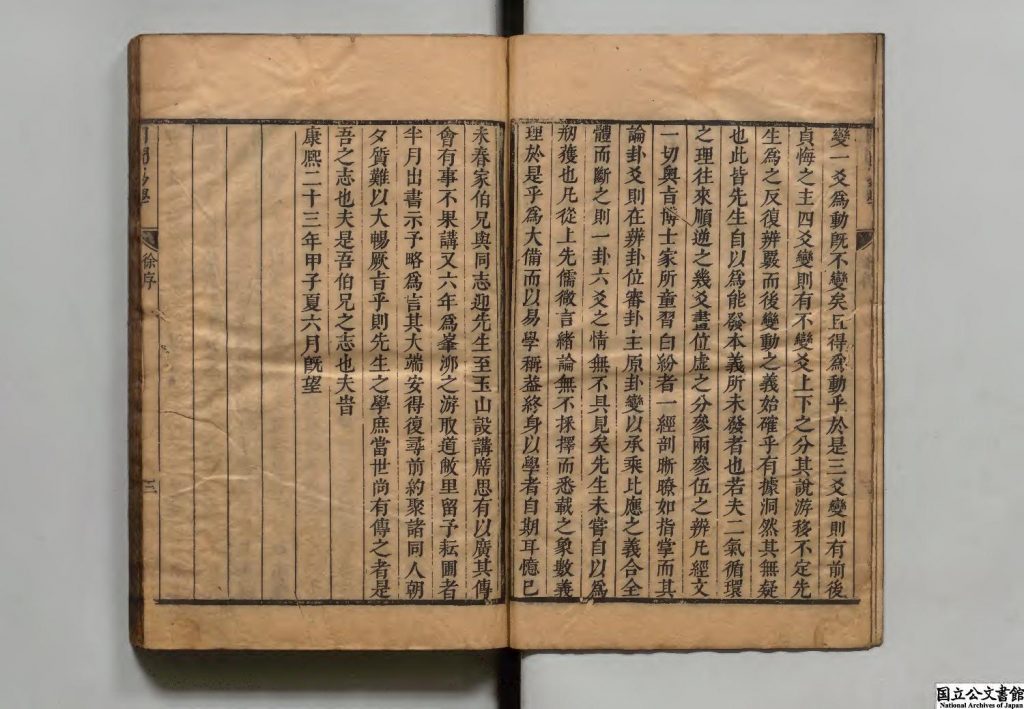 變一爻爲動旣不變矣且得爲動乎於是三爻變則有前後
貞悔之主四爻變則有不變爻上下之分其說游移不定先
生爲之反復辨覈而後變動之義始確乎有據洞然其無疑
也此皆先生自以爲能發本義所未發者也若夫二氣循環
之理往來順逆之幾爻畫位虛之分參兩參伍之辨凡經文
一切奧旨博士家所童習白紛者一經剖晰暸如指掌而其
論卦爻則在辨卦位審卦主原卦變以承乘比應之義合全
體而斷之則一卦六爻之情無不具見矣先生未嘗自以爲
刱獲也凡從上先儒微言緒論無不採擇而悉載之象數義
理於是乎爲大備而以易學稱葢終身以學者自期耳憶己
未春家伯兄與同志迎先生至玉山設講席思有以廣其傳
會有事不果講又六年爲峯泖之游取道敝里留予耘圃者
半月出書示予略爲言其大端安得復尋前約聚諸同人朝
夕質難以大暢厥旨乎則先生之學庶當世尚有傳之者是
吾之志也夫是吾伯兄之志也夫旹
康熙二十三年甲子夏六月旣望
易學
徐序
三
国立公文書館
National Archives of Japan